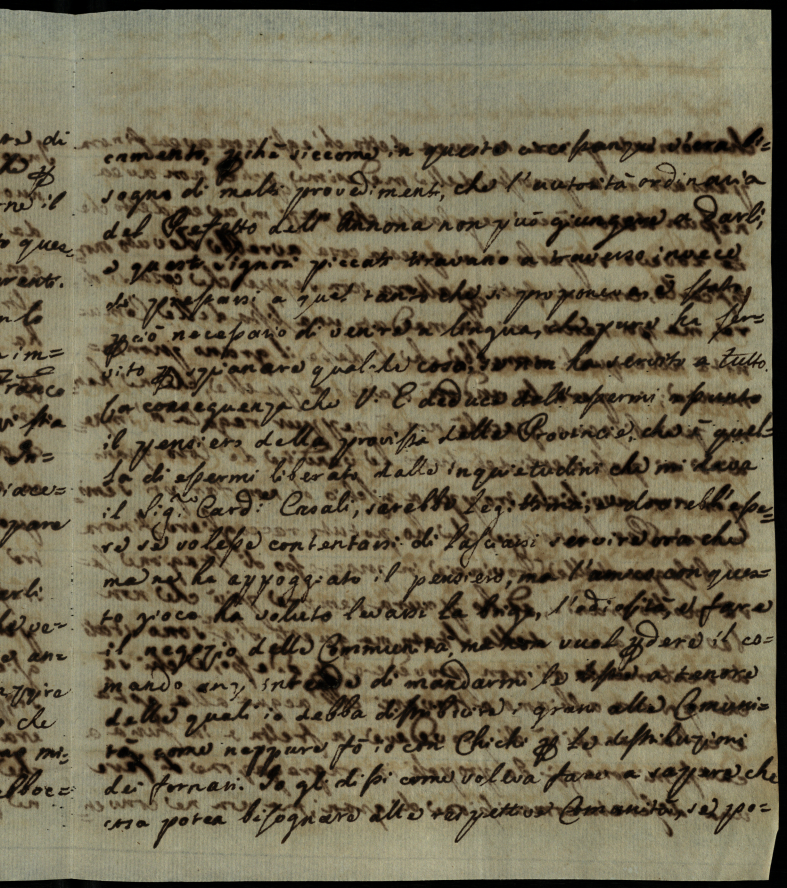 te di
il
to ques=
arent.
n lo
im=
Franco
vi sia
In=
iace=
pare
arli
ve=
an=
che
mi=
camento, pchè siccome in queste circostanze v'era bi=
sogno di molti provedimenti, che l'autorità ordinaria
del Prefetto dell'Annona non può giungere a darli,
e questi Signori piccati tiravano a traverso invece
di prestarsi a quel tanto che si proponeva, è stato
pciò necessario di venire a lingua, che pure ha ser=
vito p spianare qualche cosa, se non ha servito a tutto.
La conseguenza che V. E. deduce dall'essermi assunto
il pensiero della provista delle Provincie, che è quel=
la di essermi liberato dalle inquietudini che mi dava
il Sig.r Card: Casali, sarebbe legittima, e dovrebb'esse=
re se volesse contentarsi di lasciarsi servire ora che
me ne ha appoggiato il pensiero, ma l'amico con ques=
to gioco ha voluto levarsi la briga, l'odiosità, et fare
il negozio delle Communità, ma non vuol pdere il co=
mando anzi intende di mandarmi le liste a tenore
delle quali io debba distribuire i grani alle Comuni=
tà, come neppure fò io con Chichi p le distribuzioni
dei fornari. Io gli dissi come voleva fare a sapere che
cosa potea bisognare alle rispettive Comunità, se po=